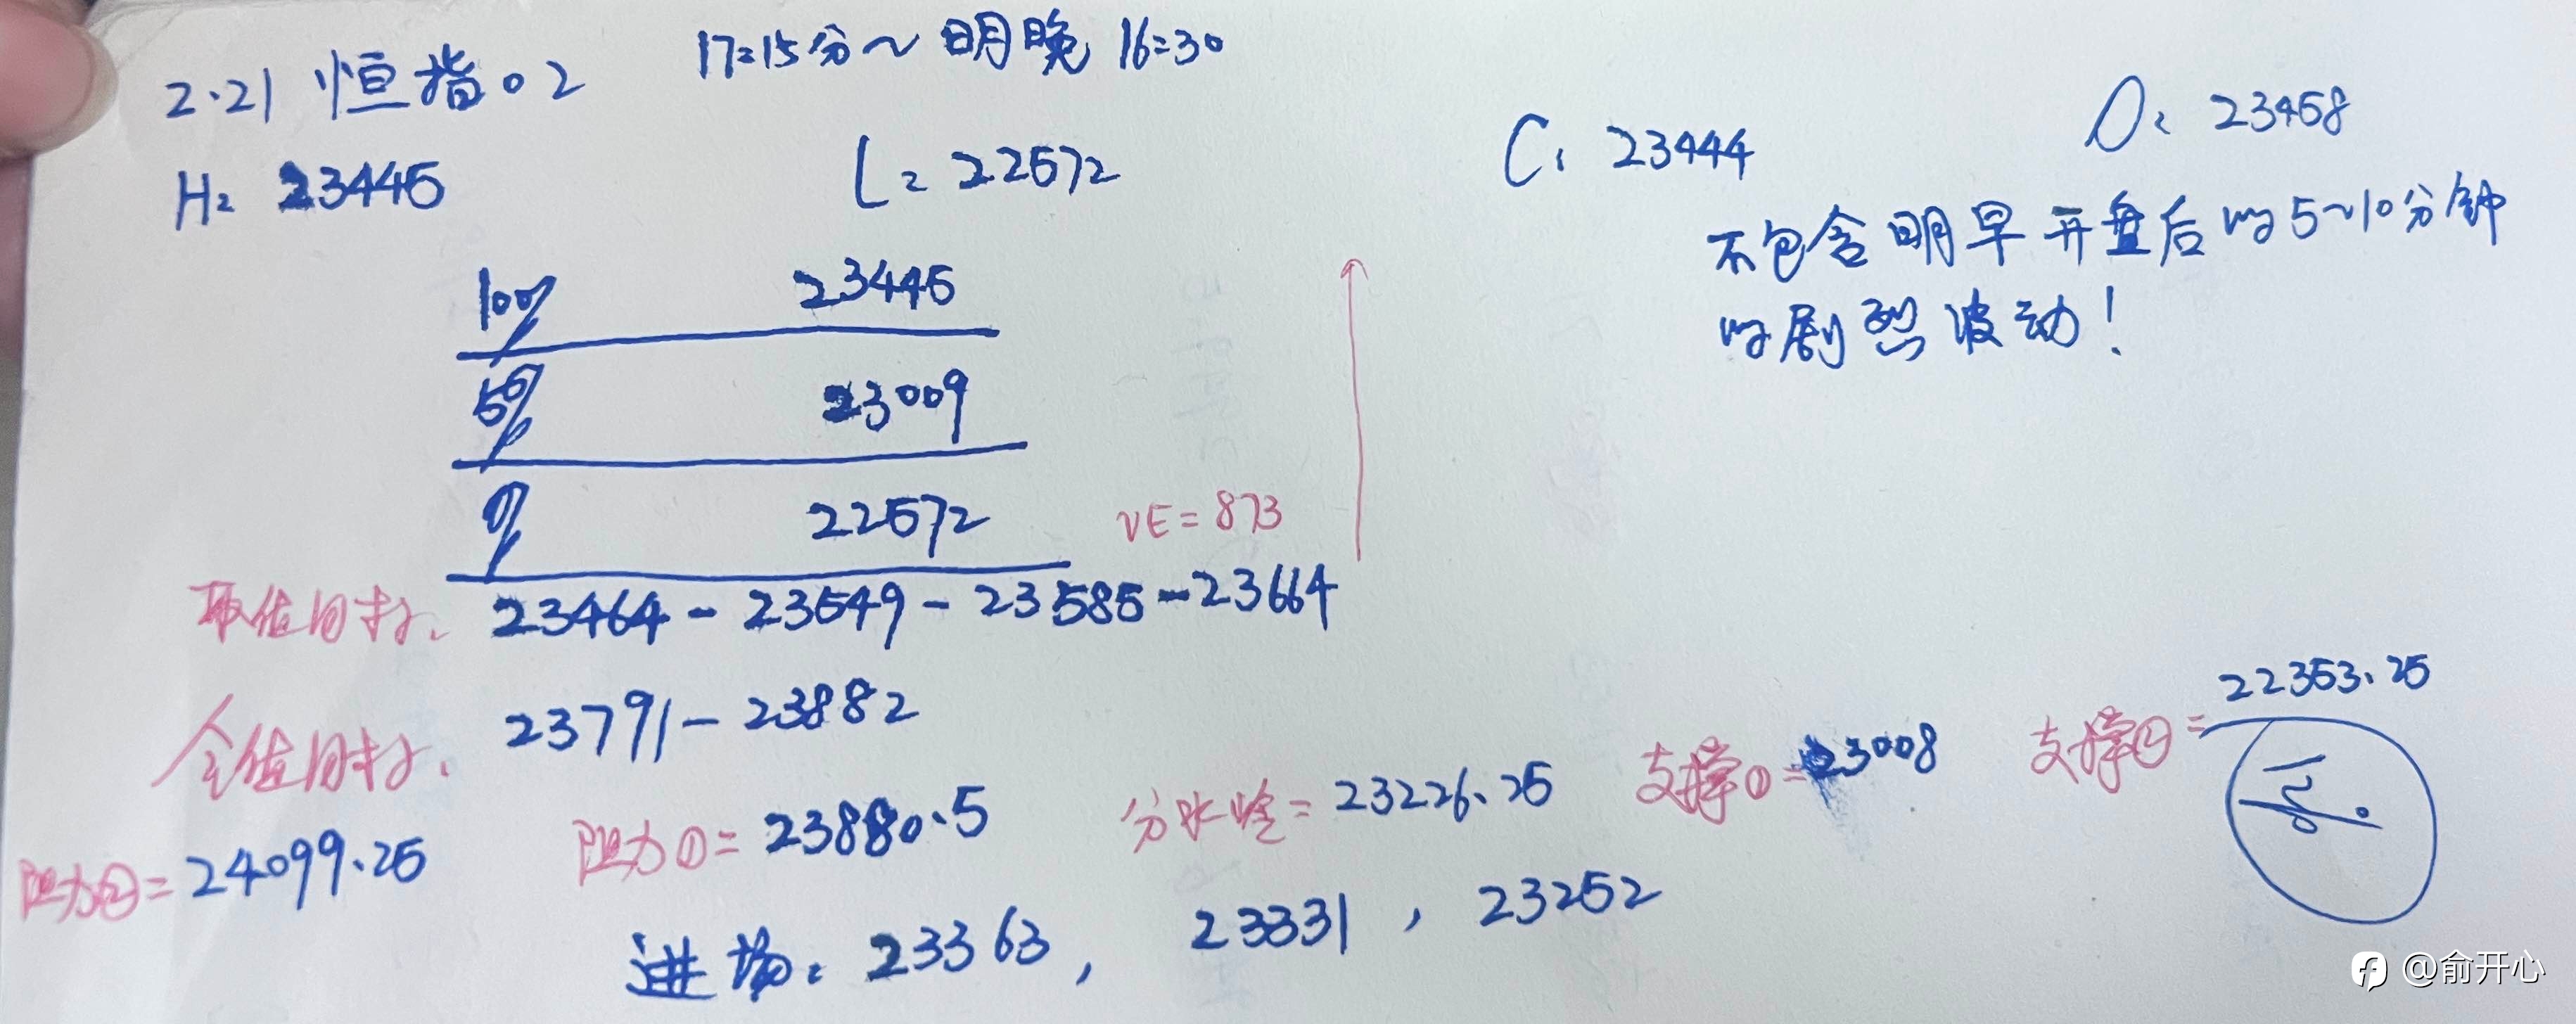 2.21 恒指02 17:15分~明晚16:30
H: 23445 L: 22572 C: 23444 O: 23458
不包含明早开盘后的5~10分钟
的剧烈波动!
100% 23445
50% 23009
0% 22572 VE=873
取值目标: 23464-23549-23585-23664
全值目标: 23791-23882
阻力②=24099.25 阻力①=23880.5 分水岭=23226.25 支撑①=23008 支撑②=22353.25
进场: 23363, 23331, 23252
@俞开心